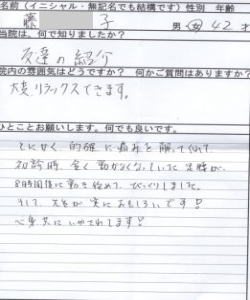 名前(イニシャル・無記名でも結構です) 性別 年齢
藤 子 男・女 42才
当院は、何で知りましたか?
友達の紹介
院内の雰囲気はどうですか? 何かご質問はありますか?
大変リラックスできます。
ひとことお願いします。何でも良いです。
とにかく、的確に痛みを解ってくれて、
初診時、全く動かなくなっていた足腰が、
8時間後に動き始めて、びっくりしました。
そして、先生が実におもしろいです!
心身共にいやされてます!